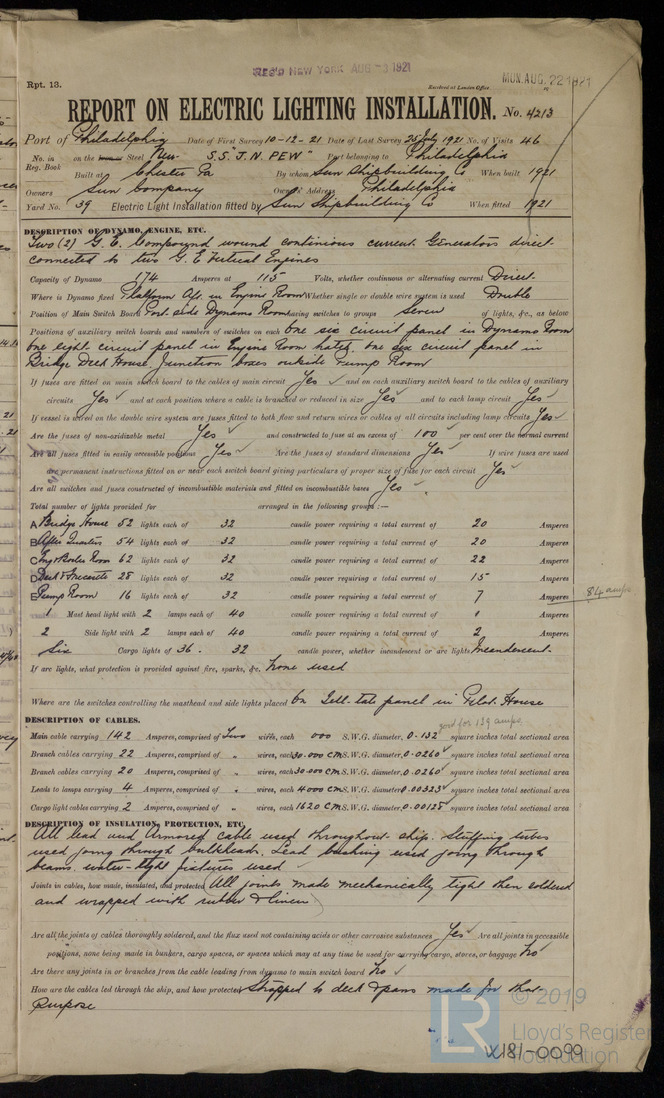 REC'D NEW YORK AUG 3 1921
Rpt. 13.
Received at London Office
MON. AUG. 22 1921
REPORT ON ELECTRIC LIGHTING INSTALLATION. No. 4213
Port of Philadelphia Date of First Survey 10-12-21 Date of Last Survey 25 July 1921 No. of Visits 46
No. in Reg. Book on the Iron Steel New S.S. "J.N. PEW" Port belonging to Philadelphia
Built at Chester Pa By whom Sun Shipbuilding Co When built 1921
Owners Sun Company Owners' Address Philadelphia
Yard No. 39 Electric Light Installation fitted by Sun Shipbuilding Co When fitted 1921
DESCRIPTION OF DYNAMO, ENGINE, ETC.
Two (2) G.E. Compound wound continious current Generators direct
connected to two G.E Vertical Engines
Capacity of Dynamo 174 Amperes at 115 Volts, whether continuous or alternating current Direct
Where is Dynamo fixed Platform Aft. in Engine Room Whether single or double wire system is used Double
Position of Main Switch Board Port side Dynamo Room having switches to groups Seven of lights, &c., as below
Positions of auxiliary switch boards and numbers of switches on each One six circuit panel in Dynamo Room
one eight circuit panel in Engine Room hatch. one six circuit panel in
Bridge Deck House. Junction boxes outside Pump Room
If fuses are fitted on main switch board to the cables of main circuit Yes ✓ and on each auxiliary switch board to the cables of auxiliary
circuits Yes ✓ and at each position where a cable is branched or reduced in size Yes ✓ and to each lamp circuit Yes ✓
If vessel is wired on the double wire system are fuses fitted to both flow and return wires or cables of all circuits including lamp circuits Yes ✓
Are the fuses of non-oxidizable metal Yes ✓ and constructed to fuse at an excess of 100 ✓ per cent over the normal current
Are all fuses fitted in easily accessible positions Yes ✓ Are the fuses of standard dimensions Yes ✓ If wire fuses are used
are permanent instructions fitted on or near each switch board giving particulars of proper size of fuse for each circuit Yes ✓
Are all switches and fuses constructed of incombustible materials and fitted on incombustible bases Yes ✓
Total number of lights provided for arranged in the following groups :—
A Bridge House 52 lights each of 32 candle power requiring a total current of 20 Amperes
B After Quarters 54 lights each of 32 candle power requiring a total current of 20 Amperes
C Eng & Boiler Room 62 lights each of 32 candle power requiring a total current of 22 Amperes
D Deck & Forecastle 28 lights each of 32 candle power requiring a total current of 15 Amperes
E Pump Room 16 lights each of 32 candle power requiring a total current of 7 Amperes 84 amps
1 Mast head light with 2 lamps each of 40 candle power requiring a total current of 1 Amperes
2 Side light with 2 lamps each of 40 candle power requiring a total current of 2 Amperes
Six Cargo lights of 36 . 32 candle power, whether incandescent or arc lights Incandescent.
If arc lights, what protection is provided against fire, sparks, &c. None used
Where are the switches controlling the masthead and side lights placed On Tell-tale panel in Pilot House
good for 139 amps
DESCRIPTION OF CABLES.
Main cable carrying 142 Amperes, comprised of Two wires, each 000 S.W.G. diameter, 0.132 square inches total sectional area
Branch cables carrying 22 Amperes, comprised of " wires, each 30.000 CM S.W.G. diameter, 0.0260 ✓ square inches total sectional area
Branch cables carrying 20 Amperes, comprised of " wires, each 30.000 CM S.W.G. diameter, 0.0260 ✓ square inches total sectional area
Leads to lamps carrying 4 Amperes, comprised of " wires, each 4000 CM S.W.G. diameter, 0.00323 ✓ square inches total sectional area
Cargo light cables carrying 2 Amperes, comprised of " wires, each 1620 CM S.W.G. diameter, 0.00128 ✓ square inches total sectional area
DESCRIPTION OF INSULATION, PROTECTION, ETC.
All lead and Armored cable used throughout ship. Stuffing tubes
used going through bulkheads. Lead bushing used going through
beams. water-tight fixtures used
Joints in cables, how made, insulated, and protected All joints made mechanically tight then soldered
and wrapped with rubber & linen
Are all the joints of cables thoroughly soldered, and the flux used not containing acids or other corrosive substances Yes ✓ Are all joints in accessible
positions, none being made in bunkers, cargo spaces, or spaces which may at any time be used for carrying cargo, stores, or baggage No ✓
Are there any joints in or branches from the cable leading from dynamo to main switch board No ✓
How are the cables led through the ship, and how protected Strapped to deck & pans made for that
purpose
© 2019
LR Lloyd's Register
Foundation
W181-0099